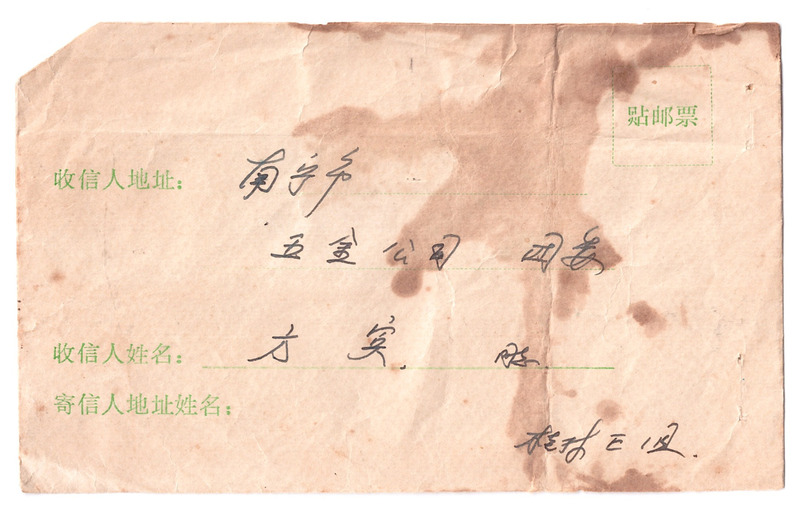 贴邮票
收信人地址: 南宁市
五金公司 团委
收信人姓名: 方 实
寄信人地址姓名:
桂林